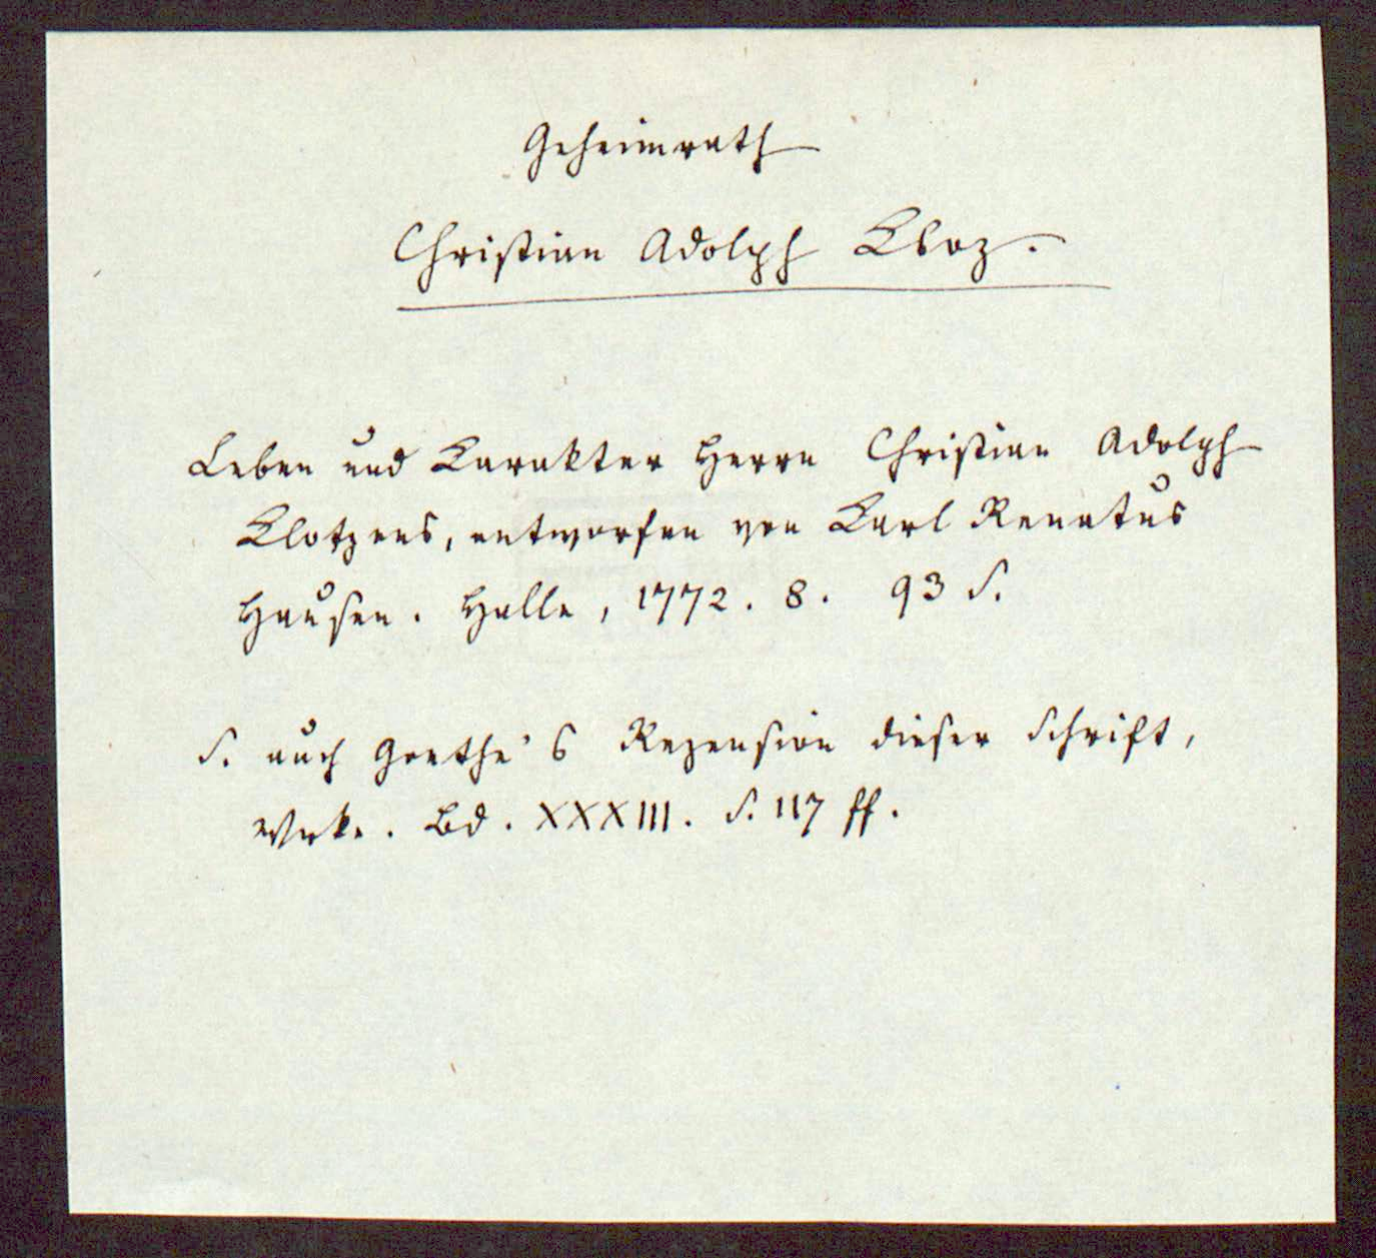 Geheimrath
Christian Adolph Kloz.
Leben und Karakter Herrn Christian Adolph
Klotzens, entworfen von Karl Renatus
Hausen. Halle, 1772. 8. 93 S.
S. auch Goethe's Rezension dieser Schrift,
Werke. Bd. XXXIII. S. 117 ff.